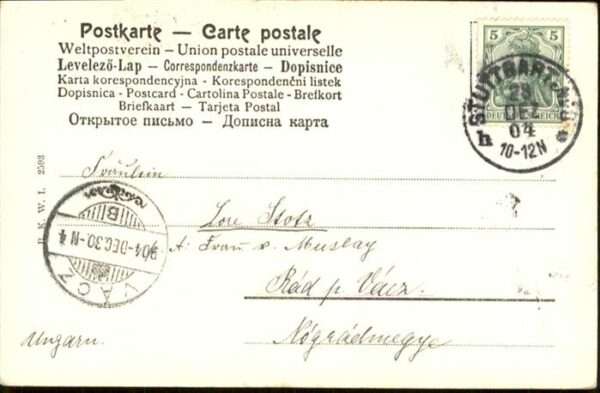 Postkarte — Carte postale
Weltpostverein – Union postale universelle
Levelező-Lap – Correspondenzkarte – Dopisnice
Karta korespondencyjna - Korespondenční listek
Dopisnica - Postcard - Cartolina Postale - Brefkort
Briefkaart – Tarjeta Postal
Открытое письмо – Дописна карта
5 5
DEUTSCHES REICH
STUTTGART
DEZ
04
10-12N
h
B. K. W. I. 2593
Fräulein
Lore Stotz
A. Frau v. Muslay
Rád p. Vácz
Nógrádmegye
Ungarn.
VÁCZ
904-DEC.30.-N 4
B